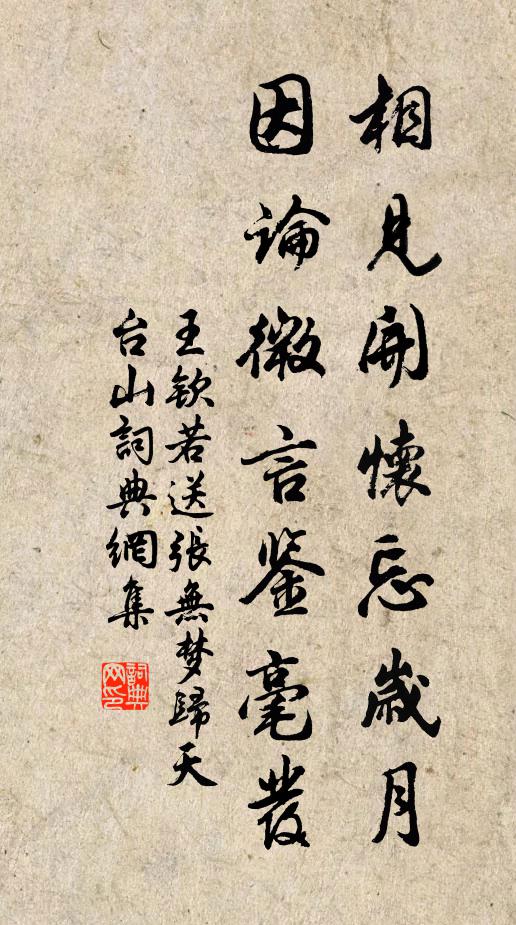 相見開懷忘歲月
因論微言鉴毫發
王欽若送張無梦歸天
台山詞典網集
詞典
网印